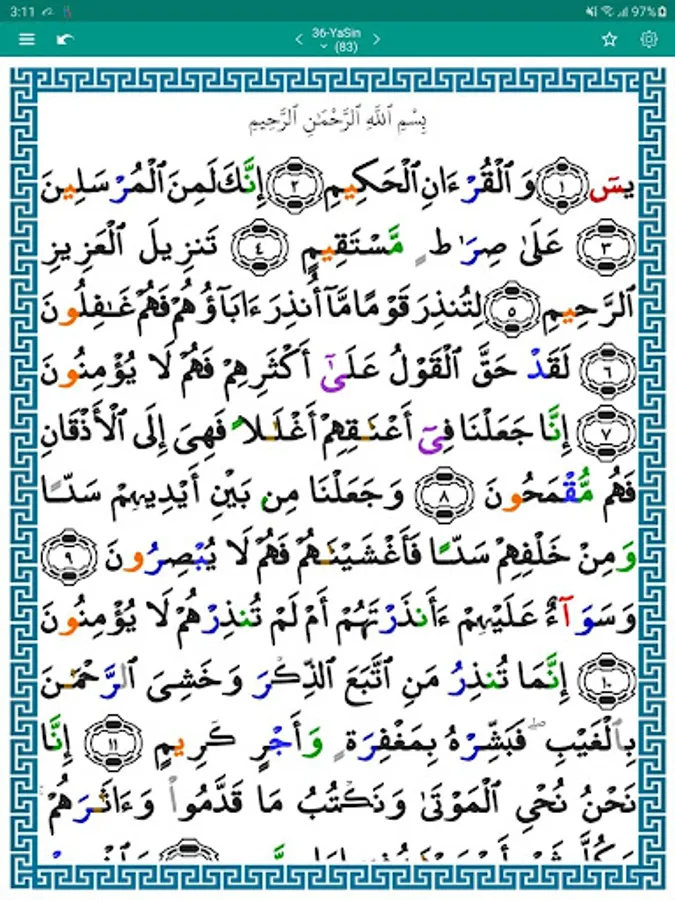 3:11 97%
36-YaSin
(83)
بِسْمِ ٱللَّهِ ٱلرَّحْمَٰنِ ٱلرَّحِيمِ
يسٓ ١ وَٱلْقُرْءَانِ ٱلْحَكِيمِ ٢ إِنَّكَ لَمِنَ ٱلْمُرْسَلِينَ
٣ عَلَىٰ صِرَٰطٍ مُّسْتَقِيمٍ ٤ تَنزِيلَ ٱلْعَزِيزِ
ٱلرَّحِيمِ ٥ لِتُنذِرَ قَوْمًا مَّآ أُنذِرَ ءَابَآؤُهُمْ فَهُمْ غَٰفِلُونَ
٦ لَقَدْ حَقَّ ٱلْقَوْلُ عَلَىٰٓ أَكْثَرِهِمْ فَهُمْ لَا يُؤْمِنُونَ
٧ إِنَّا جَعَلْنَا فِىٓ أَعْنَٰقِهِمْ أَغْلَٰلًا فَهِىَ إِلَى ٱلْأَذْقَانِ
فَهُم مُّقْمَحُونَ ٨ وَجَعَلْنَا مِنۢ بَيْنِ أَيْدِيهِمْ سَدًّا
وَمِنْ خَلْفِهِمْ سَدًّا فَأَغْشَيْنَٰهُمْ فَهُمْ لَا يُبْصِرُونَ ٩
وَسَوَآءٌ عَلَيْهِمْ ءَأَنذَرْتَهُمْ أَمْ لَمْ تُنذِرْهُمْ لَا يُؤْمِنُونَ
١٠ إِنَّمَا تُنذِرُ مَنِ ٱتَّبَعَ ٱلذِّكْرَ وَخَشِىَ ٱلرَّحْمَٰنَ
بِٱلْغَيْبِ ۖ فَبَشِّرْهُ بِمَغْفِرَةٍ وَأَجْرٍ كَرِيمٍ ١١ إِنَّا
نَحْنُ نُحْىِ ٱلْمَوْتَىٰ وَنَكْتُبُ مَا قَدَّمُوا۟ وَءَاثَٰرَهُمْ ۚ